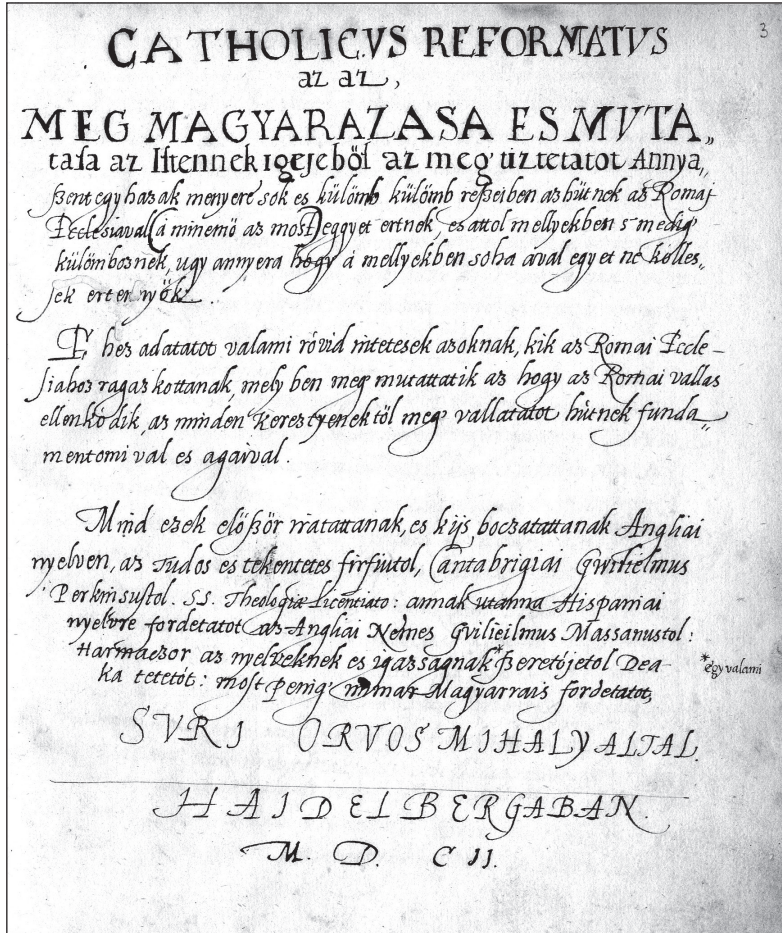 3
CATHOLICVS REFORMATVS
az az,
MEG MAGYARAZASA ES MVTA„
tasa az Istennek igejeböl az meg üztetatot Annya„
szent egyhazak menyere sok es külömb külömb reszeiben az hütnek az Romai
Ecclesiaval (á minemö az most) eggyet ertnek, es attol mellyekben s medig
külömböznek, ugy annyera hogy á mellyekben soha aval egyet ne kölles„
sek erteniyök.
E hez adatatot valami rövid intetesek azoknak, kik az Romai Eccle–
siahoz ragaz kottanak, mely ben meg mutattatik az hogy az Romai vallas
ellenkö dik, az minden kereztyenek töl meg vallatatot hütnek funda„
mentomi val es agaival.
Mind ezek elöször iratattanak, es kijs boczatattanak Angliai
nyelven, az Tudos es tekentetes firfiutol, Cantabrigiai Gwilielmus
Perkinsustol. SS. Theologiæ Licentiato: annak utanna Hispaniai
nyelvre fordetatot az Angliai Nemes Gvilieilmus Massanustol:
Harmaczor az nyelveknek es igassagnak * szeretöjetol Dea–
* egy valami
ka tetetöt: most penig immar Magyarrais fordetatot,
SVRI ORVOS MIHALY ALTAL.
HAIDELBERGABAN.
M. D. CII.